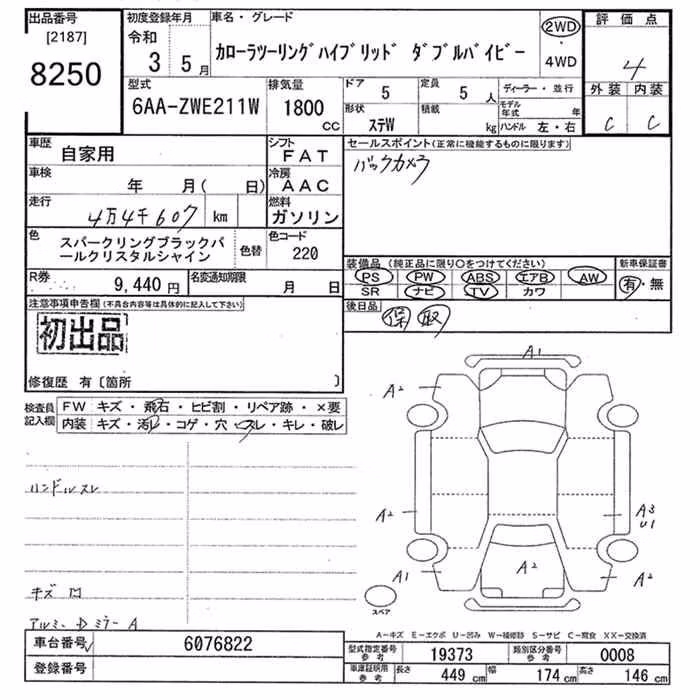 出品番号
[2187]
8250
初度登録年月
令和
3 5月
車名・グレード
カローラツーリングハイブリッド ダブルバイビー
2WD
・
4WD
評価点
4
外装 内装
C C
型式
6AA-ZWE211W
排気量
1800
CC
ドア 5
定員 5 人
形状 ステW
積載 kg
ディーラー・並行
モデル年式 年
ハンドル 左・右
車歴
自家用
シフト
FAT
車検
年 月( 日)
冷房
AAC
走行
4万4千607 km
燃料
ガソリン
色
スパークリングブラックパ
ールクリスタルシャイン
色替
色コード
220
R券
9,440円
名変通知期限
月 日
セールスポイント(正常に機能するものに限ります)
バックカメラ
装備品(純正品に限り〇をつけてください)
PS PW ABS エアB AW
SR ナビ TV カワ
新車保証書
有・無
後日品
保 取
注意事項申告欄(不具合内容等は具体的に記入して下さい)
初出品
修復歴 有〔箇所 〕
検査員
記入欄
FW キズ・飛石・ヒビ割・リペア跡・×要
内装 キズ・汚レ・コゲ・穴・スレ・キレ・破レ
ハンドルスレ
キズ 凹
アルミ D ミラー A
A1
A2
A2
A3
U1
A1
A2
A2
スペア
A-キズ E-エクボ U-凹み W-補修跡 S-サビ C-腐食 XX-交換済
車台番号
6076822
登録番号
型式指定番号
参考
19373
類別区分番号
参考
0008
車庫証明用
参考
長さ 449 cm
幅 174 cm
高さ 146 cm